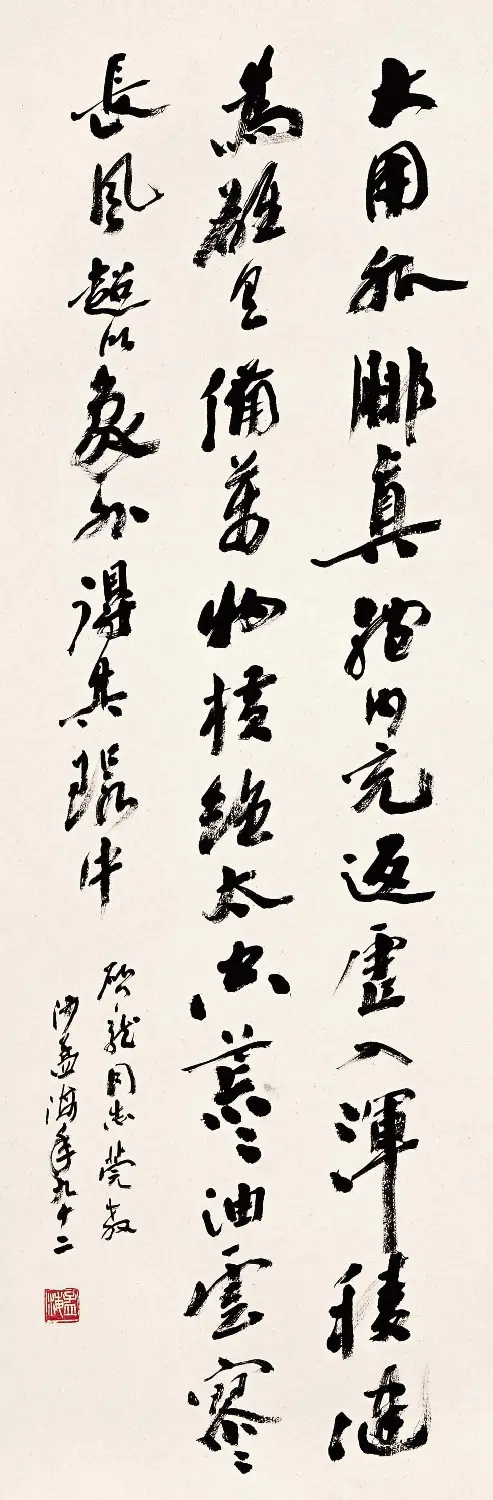 大用外腓真體內充返虛入渾積健
為雄具備萬物橫絕太空荒〻油雲寥〻
長風超以象外得其環中
龍同志莞教
沙孟海年九十二
孟海